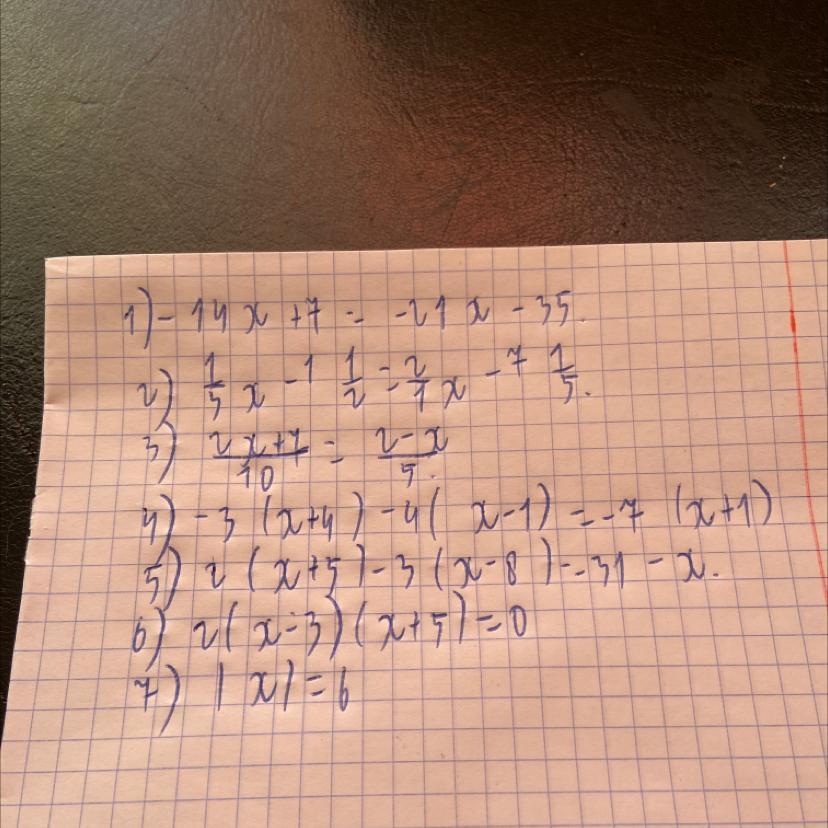 1) -14x +7 = -21x - 35.
2) 1/5 x - 1 1/2 = 2/7 x - 7 1/5.
3) 2x+7/10 = 2-x/5.
4) -3 (x+4) -4( x-1) = -7 (x+1)
5) 2 (x+5) -3 (x-8) = 31 - x.
6) 2(x-3)(x+5)=0
7) |x|=6